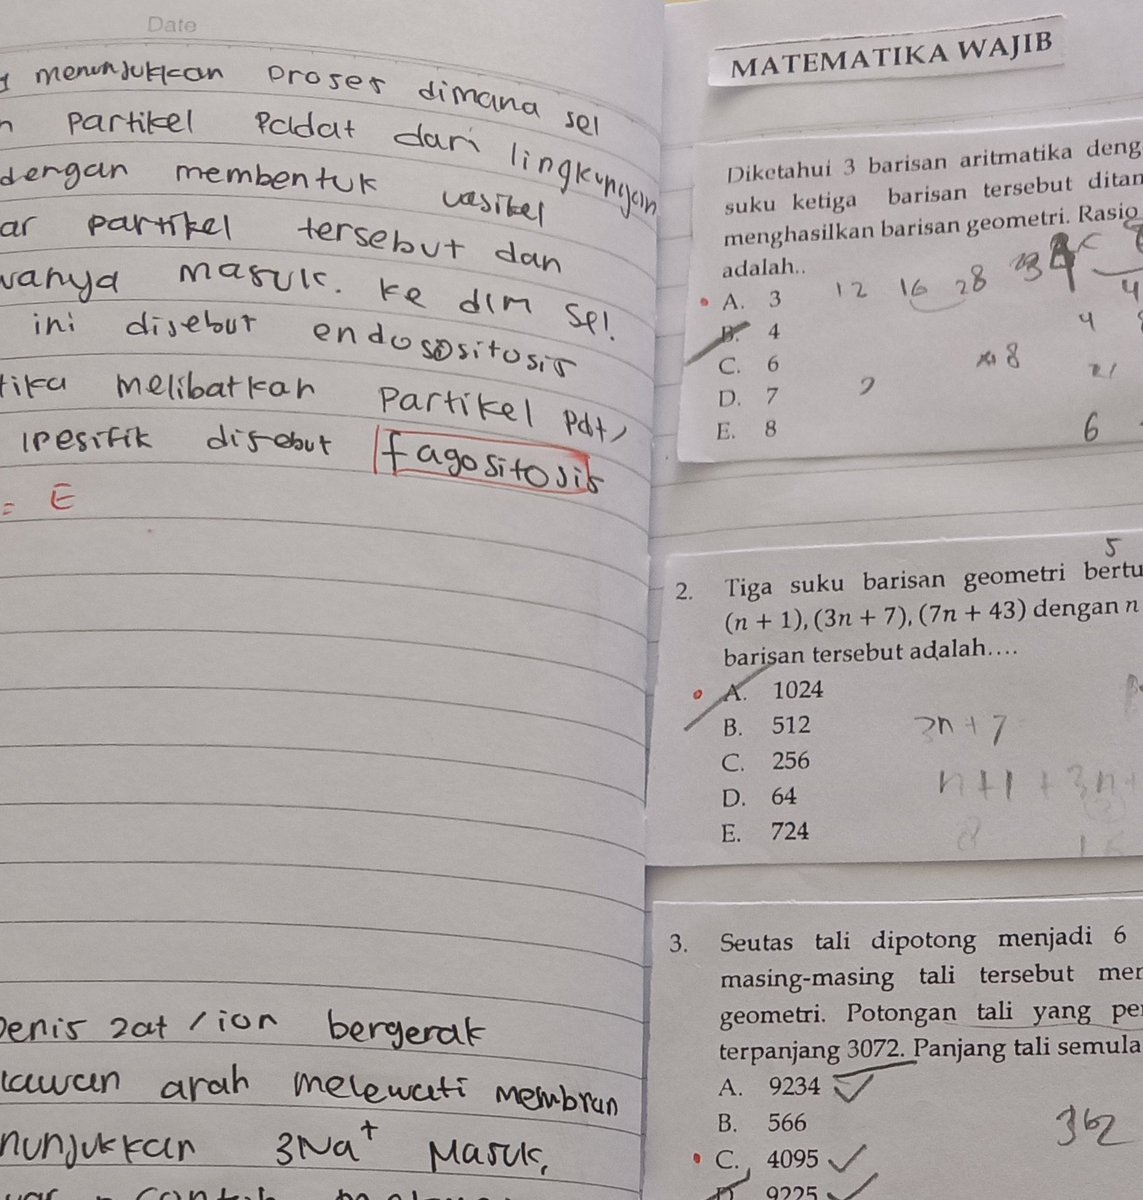 Date
menunjukkan proses dimana sel
partikel padat dari lingkungan
dengan membentuk vesikel
ar partikel tersebut dan
wanya masuk. ke dlm sel.
ini disebut endosositosis
tika melibatkan partikel pdt,
spesifik disebut fagositosis
= E
Jenis zat / ion bergerak
lawan arah melewati membran
nunjukkan 3Na⁺ Masuk,
MATEMATIKA WAJIB
Diketahui 3 barisan aritmatika deng
suku ketiga barisan tersebut ditam
menghasilkan barisan geometri. Rasio
adalah..
A. 3
12 16 28
B. 4
4
4
C. 6
8
21
D. 7
E. 8
6
5
2. Tiga suku barisan geometri bertu
(n + 1), (3n + 7), (7n + 43) dengan n
barisan tersebut adalah....
A. 1024
B. 512
3n + 7
C. 256
n+1 + 3n+
D. 64
E. 724
3. Seutas tali dipotong menjadi 6
masing-masing tali tersebut mem
geometri. Potongan tali yang pe
terpanjang 3072. Panjang tali semula
A. 9234
B. 566
362
C. 4095
D. 9225